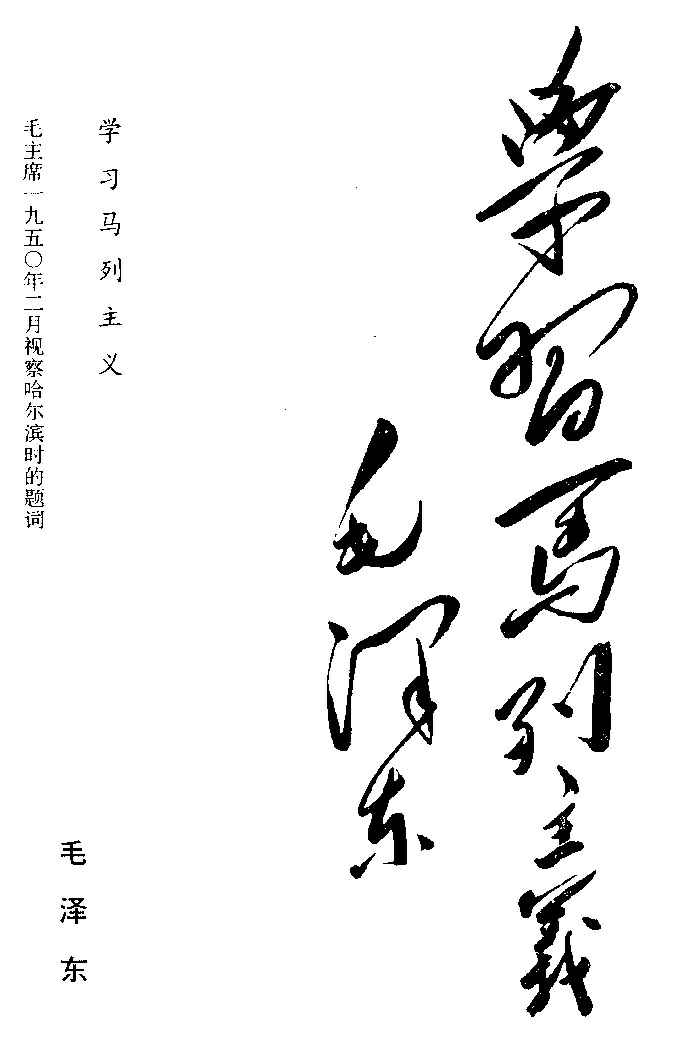 學習馬列主義
毛澤东
学习马列主义
毛泽东
毛主席一九五〇年二月视察哈尔滨时的题词